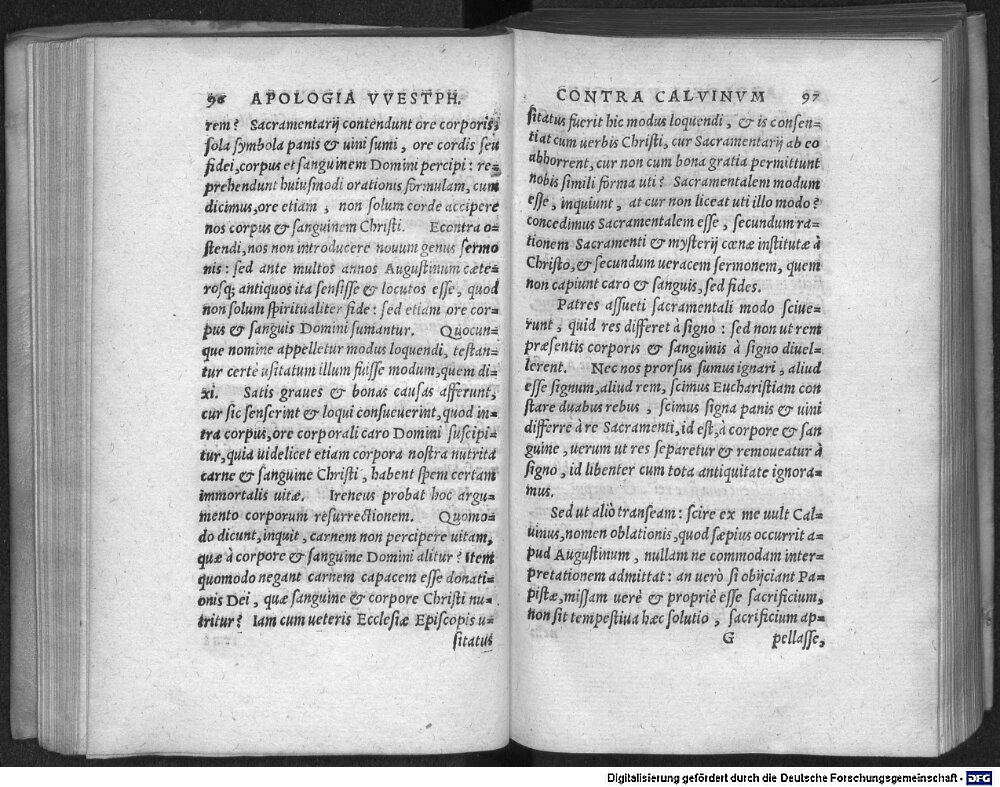 96 APOLOGIA VVESTPH.
rem? Sacramentarij contendunt ore corporis,
sola symbola panis & uini sumi, ore cordis seu
fidei,corpus et sanguinem Domini percipi: re=
prehendunt huiusmodi orationis formulam, cum
dicimus,ore etiam, non solum corde accipere
nos corpus & sanguinem Christi. Econtra o=
stendi,nos non introducere nouum genus sermo
nis: sed ante multos annos Augustinum cæte=
rosq; antiquos ita sensisse & locutos esse, quod
non solum spiritualiter fide: sed etiam ore cor=
pus & sanguis Domini sumantur. Quocun=
que nomine appelletur modus loquendi, testan=
tur certe usitatum illum fuisse modum,quem di=
xi. Satis graues & bonas causas afferunt,
cur sic senserint & loqui consueuerint,quod in=
tra corpus,ore corporali caro Domini suscipi=
tur,quia uidelicet etiam corpora nostra nutrita
carne & sanguine Christi, habent spem certam
immortalis uitæ. Ireneus probat hoc argu=
mento corporum resurrectionem. Quomo=
do dicunt,inquit, carnem non percipere uitam,
quæ à corpore & sanguine Domini alitur? Item
quomodo negant carnem capacem esse donati=
onis Dei, quæ sanguine & corpore Christi nu=
tritur? Iam cum ueteris Ecclesiæ Episcopis u=
sitatus
CONTRA CALVINVM 97
sitatus fuerit hic modus loquendi, & is consen=
tiat cum uerbis Christi, cur Sacramentarij ab eo
abhorrent, cur non cum bona gratia permittunt
nobis simili forma uti? Sacramentalem modum
esse, inquiunt, at cur non liceat uti illo modo?
concedimus Sacramentalem esse, secundum ra=
tionem Sacramenti & mysterij cœnæ institutæ à
Christo,& secundum ueracem sermonem, quem
non capiunt caro & sanguis,sed fides.
Patres assueti sacramentali modo sciue=
runt, quid res differet à signo: sed non ut rem
præsentis corporis & sanguinis à signo diuel=
lerent. Nec nos prorsus sumus ignari, aliud
esse signum,aliud rem, scimus Eucharistiam con
stare duabus rebus, scimus signa panis & uini
differre à re Sacramenti,id est,à corpore & san
guine, uerum ut res separetur & remoueatur à
signo, id libenter cum tota antiquitate ignora=
mus.
Sed ut aliò transeam: scire ex me uult Cal=
uinus,nomen oblationis,quod sæpius occurrit a=
pud Augustinum, nullam ne commodam inter=
pretationem admittat: an uerò si obijciant Pa=
pistæ,missam uerè & propriè esse sacrificium,
non sit tempestiua hæc solutio, sacrificium ap=
G pellasse,
Digitalisierung gefördert durch die Deutsche Forschungsgemeinschaft - DFG